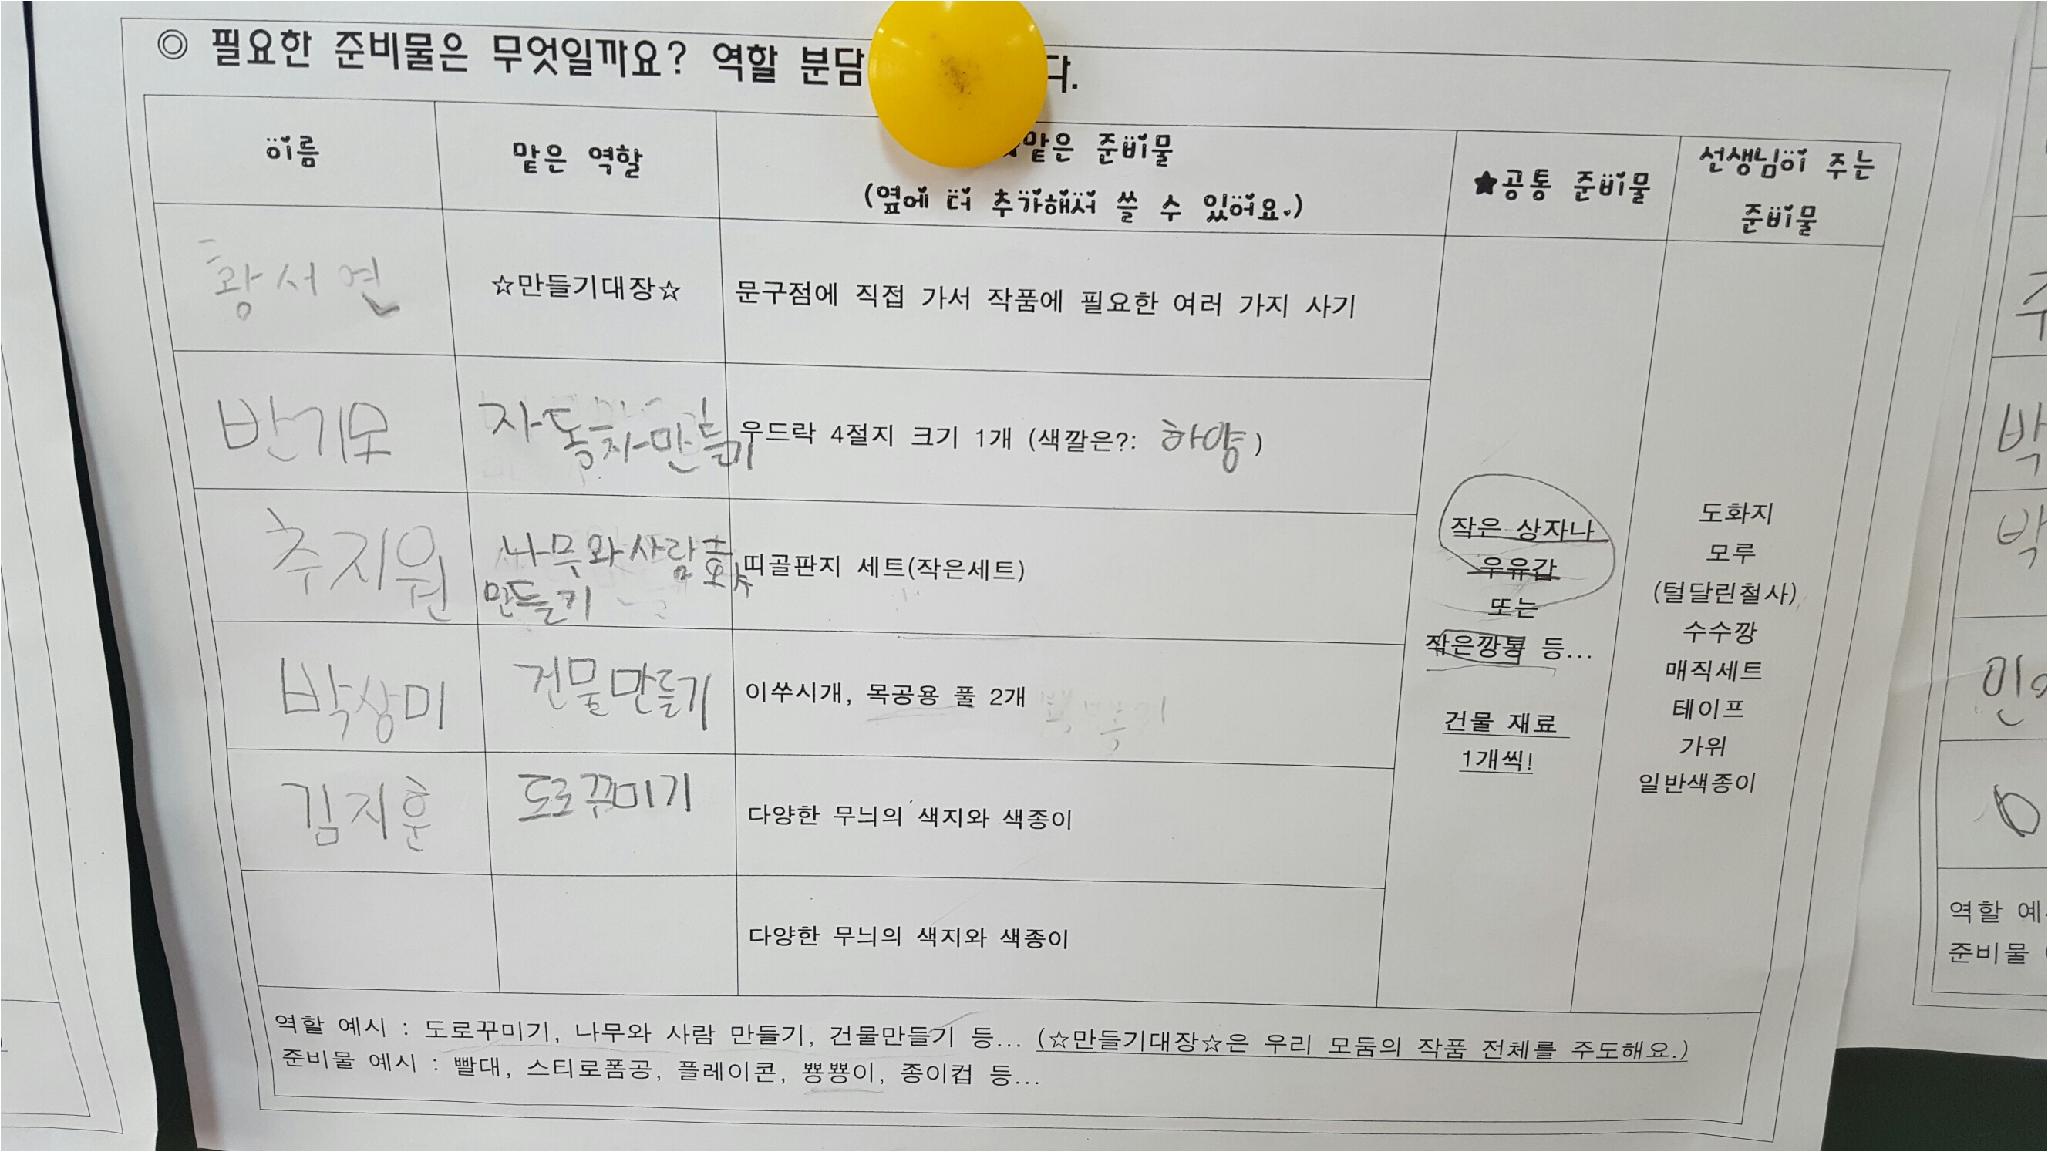 ◎ 필요한 준비물은 무엇일까요? 역할 분담 다.
이름
맡은 역할
맡은 준비물
(옆에 더 추가해서 쓸 수 있어요.)
★공통 준비물
선생님이 주는
준비물
황서연
☆만들기대장☆
문구점에 직접 가서 작품에 필요한 여러 가지 사기
반기모
자동차만들기
우드락 4절지 크기 1개 (색깔은?: 하양)
추지원
나무와 사람
만들기
띠골판지 세트(작은세트)
박상미
건물만들기
이쑤시개, 목공용 풀 2개
김지훈
도로꾸미기
다양한 무늬의 색지와 색종이
다양한 무늬의 색지와 색종이
작은 상자나
우유갑
또는
작은깡통 등...
건물 재료
1개씩!
도화지
모루
(털달린철사)
수수깡
매직세트
테이프
가위
일반색종이
역할 예시 : 도로꾸미기, 나무와 사람 만들기, 건물만들기 등... (☆만들기대장☆은 우리 모둠의 작품 전체를 주도해요.)
준비물 예시 : 빨대, 스티로폼공, 플레이콘, 뿅뿅이, 종이컵 등...
박
박
역할 예
준비물